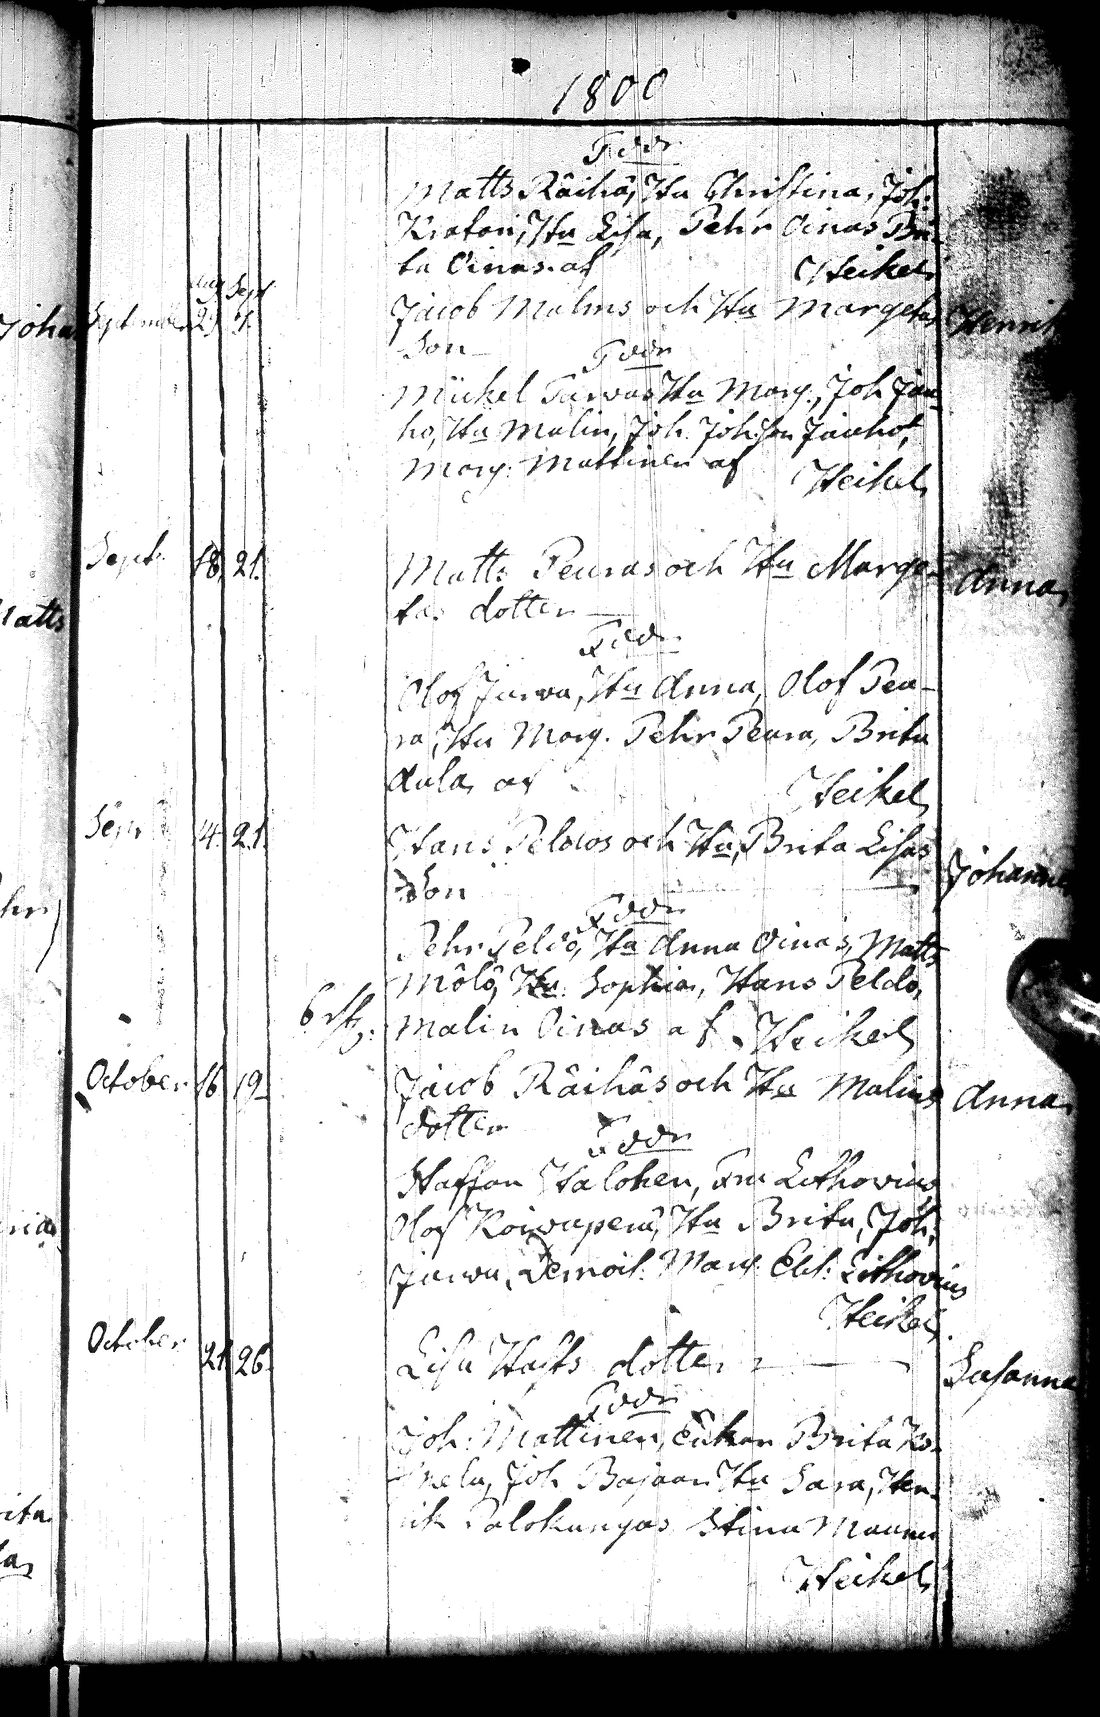 1800
Fadr
Matts Räihä, Hu Christina, Joh:
Kratari, Hu Lisa, Pehr Oinas Bri-
ta Oinas. af Heikel
Aug Sept
Joha
September 29 6. Jacob Malms och Hu Margetas Henrik
Son
Fadr
Mickel Turvas Hu Marg., Joh Jau-
ho, Hu Malin, Joh. Joh:son Jauho,
Marg: Mattinen af Heikel
Sept. 18. 21. Matts Peuras och Hu Marge- Anna
tas dotter
Matts
Fadr
Olof Jurva, Hu Anna, Olof Peu-
ra, Hu Marg. Pehr Peura, Brita
Aula, af Heikel
Sept 14. 21. Hans Peldos och Hu, Brita Lisas Johannes
Son
Fadr
Pehr Peldo, Hu Anna Oinas, Matts
Mölö, Hu. Sophia, Hans Peldo,
Malin Oinas af Heikel
October 16 19 Jacob Räihäs och Hu Malins Anna
dotter
Fadr
Staffan Halonen, Fru Lithovius
Olof Koivuperä, Hu Brita, Joh:
Jurva, Demois: Marg. Elis: Lithovius
Heikel
October 21. 26. Lisa Hasts dotter Susanna
Fadr
Joh: Mattinen, Enkan Brita Ko-
mela, Joh Bajaan Hu Sara, Hen-
rik Palokangas Stina Maunu
Heikel